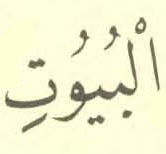 الْبُيُوُتِ